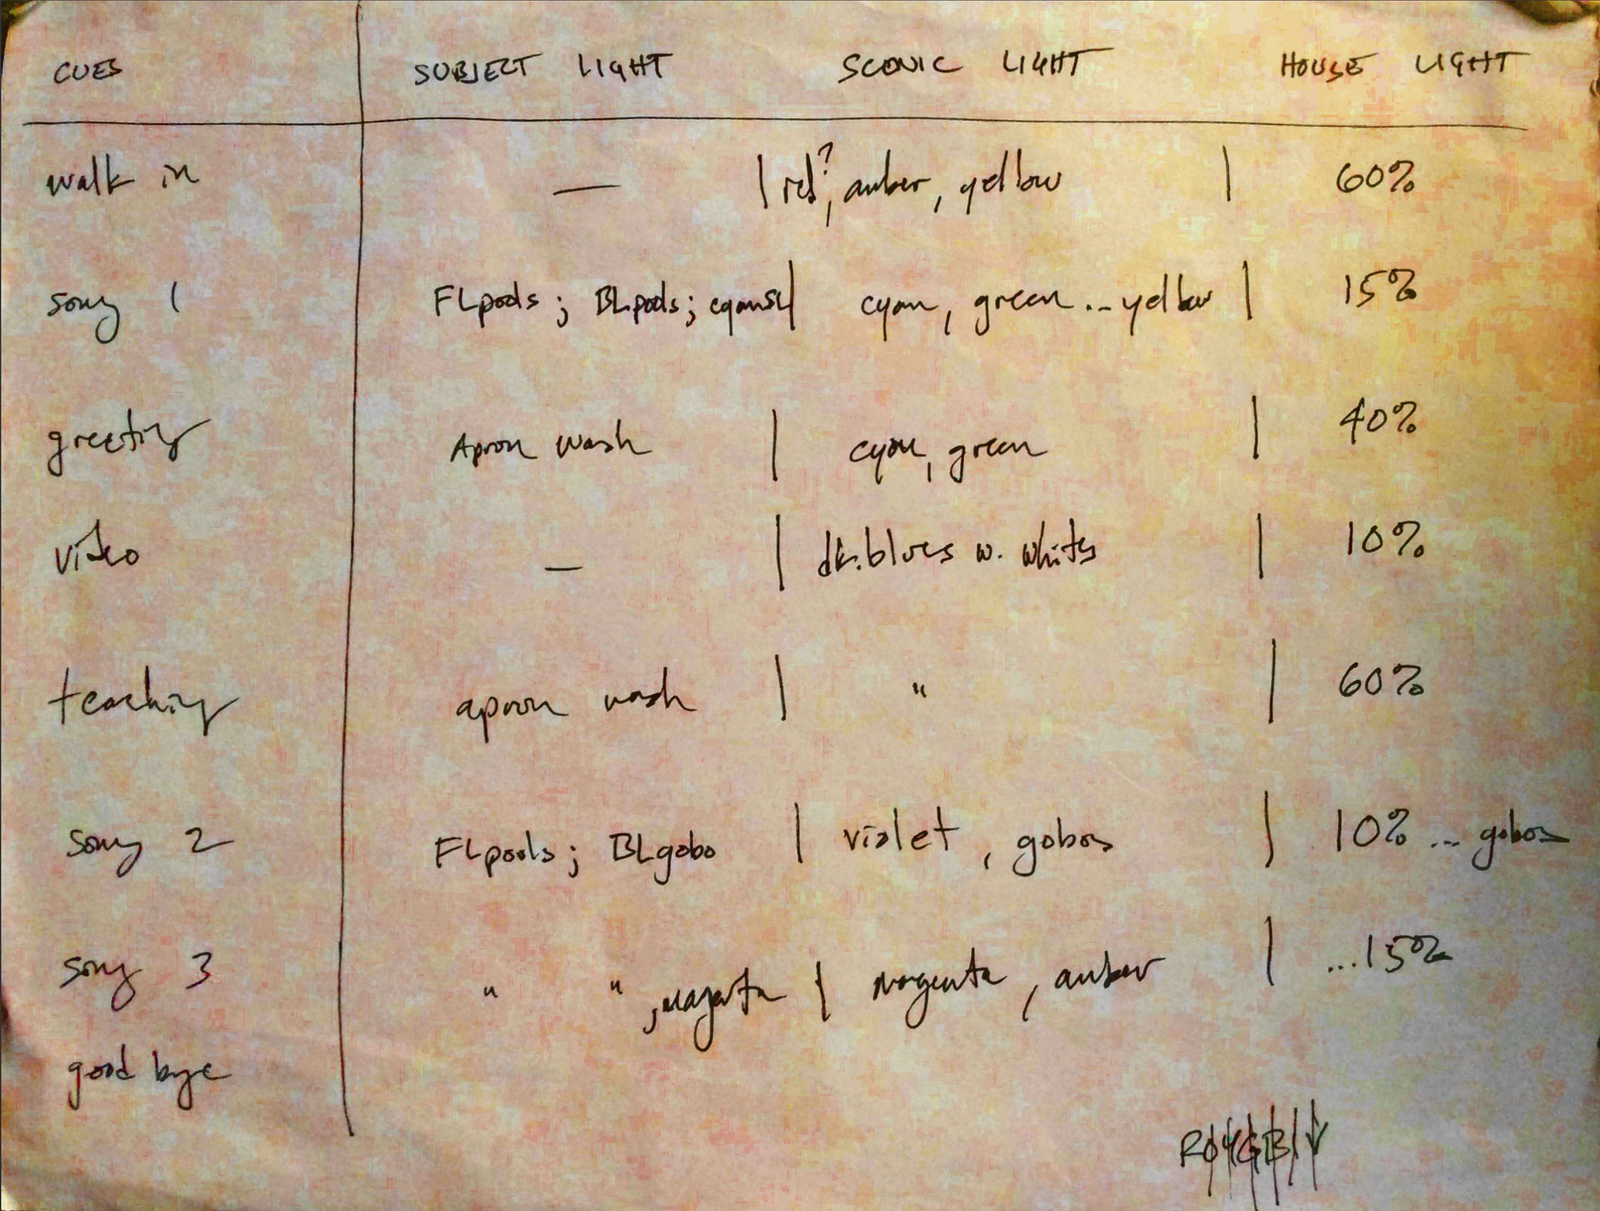 CUES SUBJECT LIGHT SCENIC LIGHT HOUSE LIGHT
walk in — | red?, amber, yellow | 60%
song 1 FLpools ; BLpools; cyansl| cyan, green...yellow | 15%
greeting Apron wash | cyan, green | 40%
video — | dk.blues w. whites | 10%
teaching apron wash | " | 60%
song 2 FLpools; BLgobo | violet, gobos | 10% ... gobos
song 3 " " , magenta | magenta, amber | ...15%
good bye
ROYGBIV